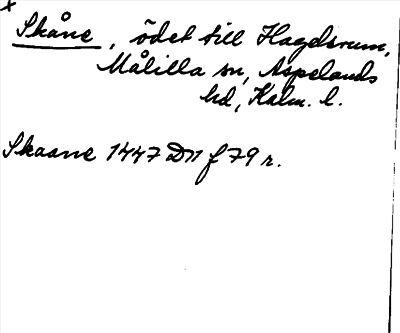 x
Skåne, ödet till Hagdsrum,
Målilla sn, Aspelands
hd, Kalm. l.
Skaane 1447 Dn f 79 r.